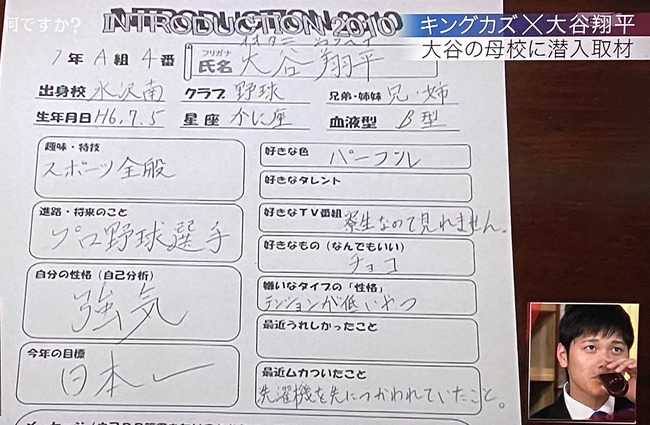 何ですか?
INTRODUCTION 2010
キングカズ×大谷翔平
大谷の母校に潜入取材
1年 A組 4番
フリガナ
氏名 大谷 翔平
出身校 水沢南
クラブ 野球
兄弟・姉妹 兄・姉
生年月日 H6.7.5
星座 かに座
血液型 B型
趣味・特技
スポーツ全般
進路・将来のこと
プロ野球選手
自分の性格(自己分析)
強気
今年の目標
日本一
好きな色 パープル
好きなタレント
好きなTV番組 寮生なので見れません。
好きなもの(なんでもいい)
チョコ
嫌いなタイプの「性格」
テンションが低いやつ
最近うれしかったこと
最近ムカついたこと
洗濯機を先につかわれていたこと。